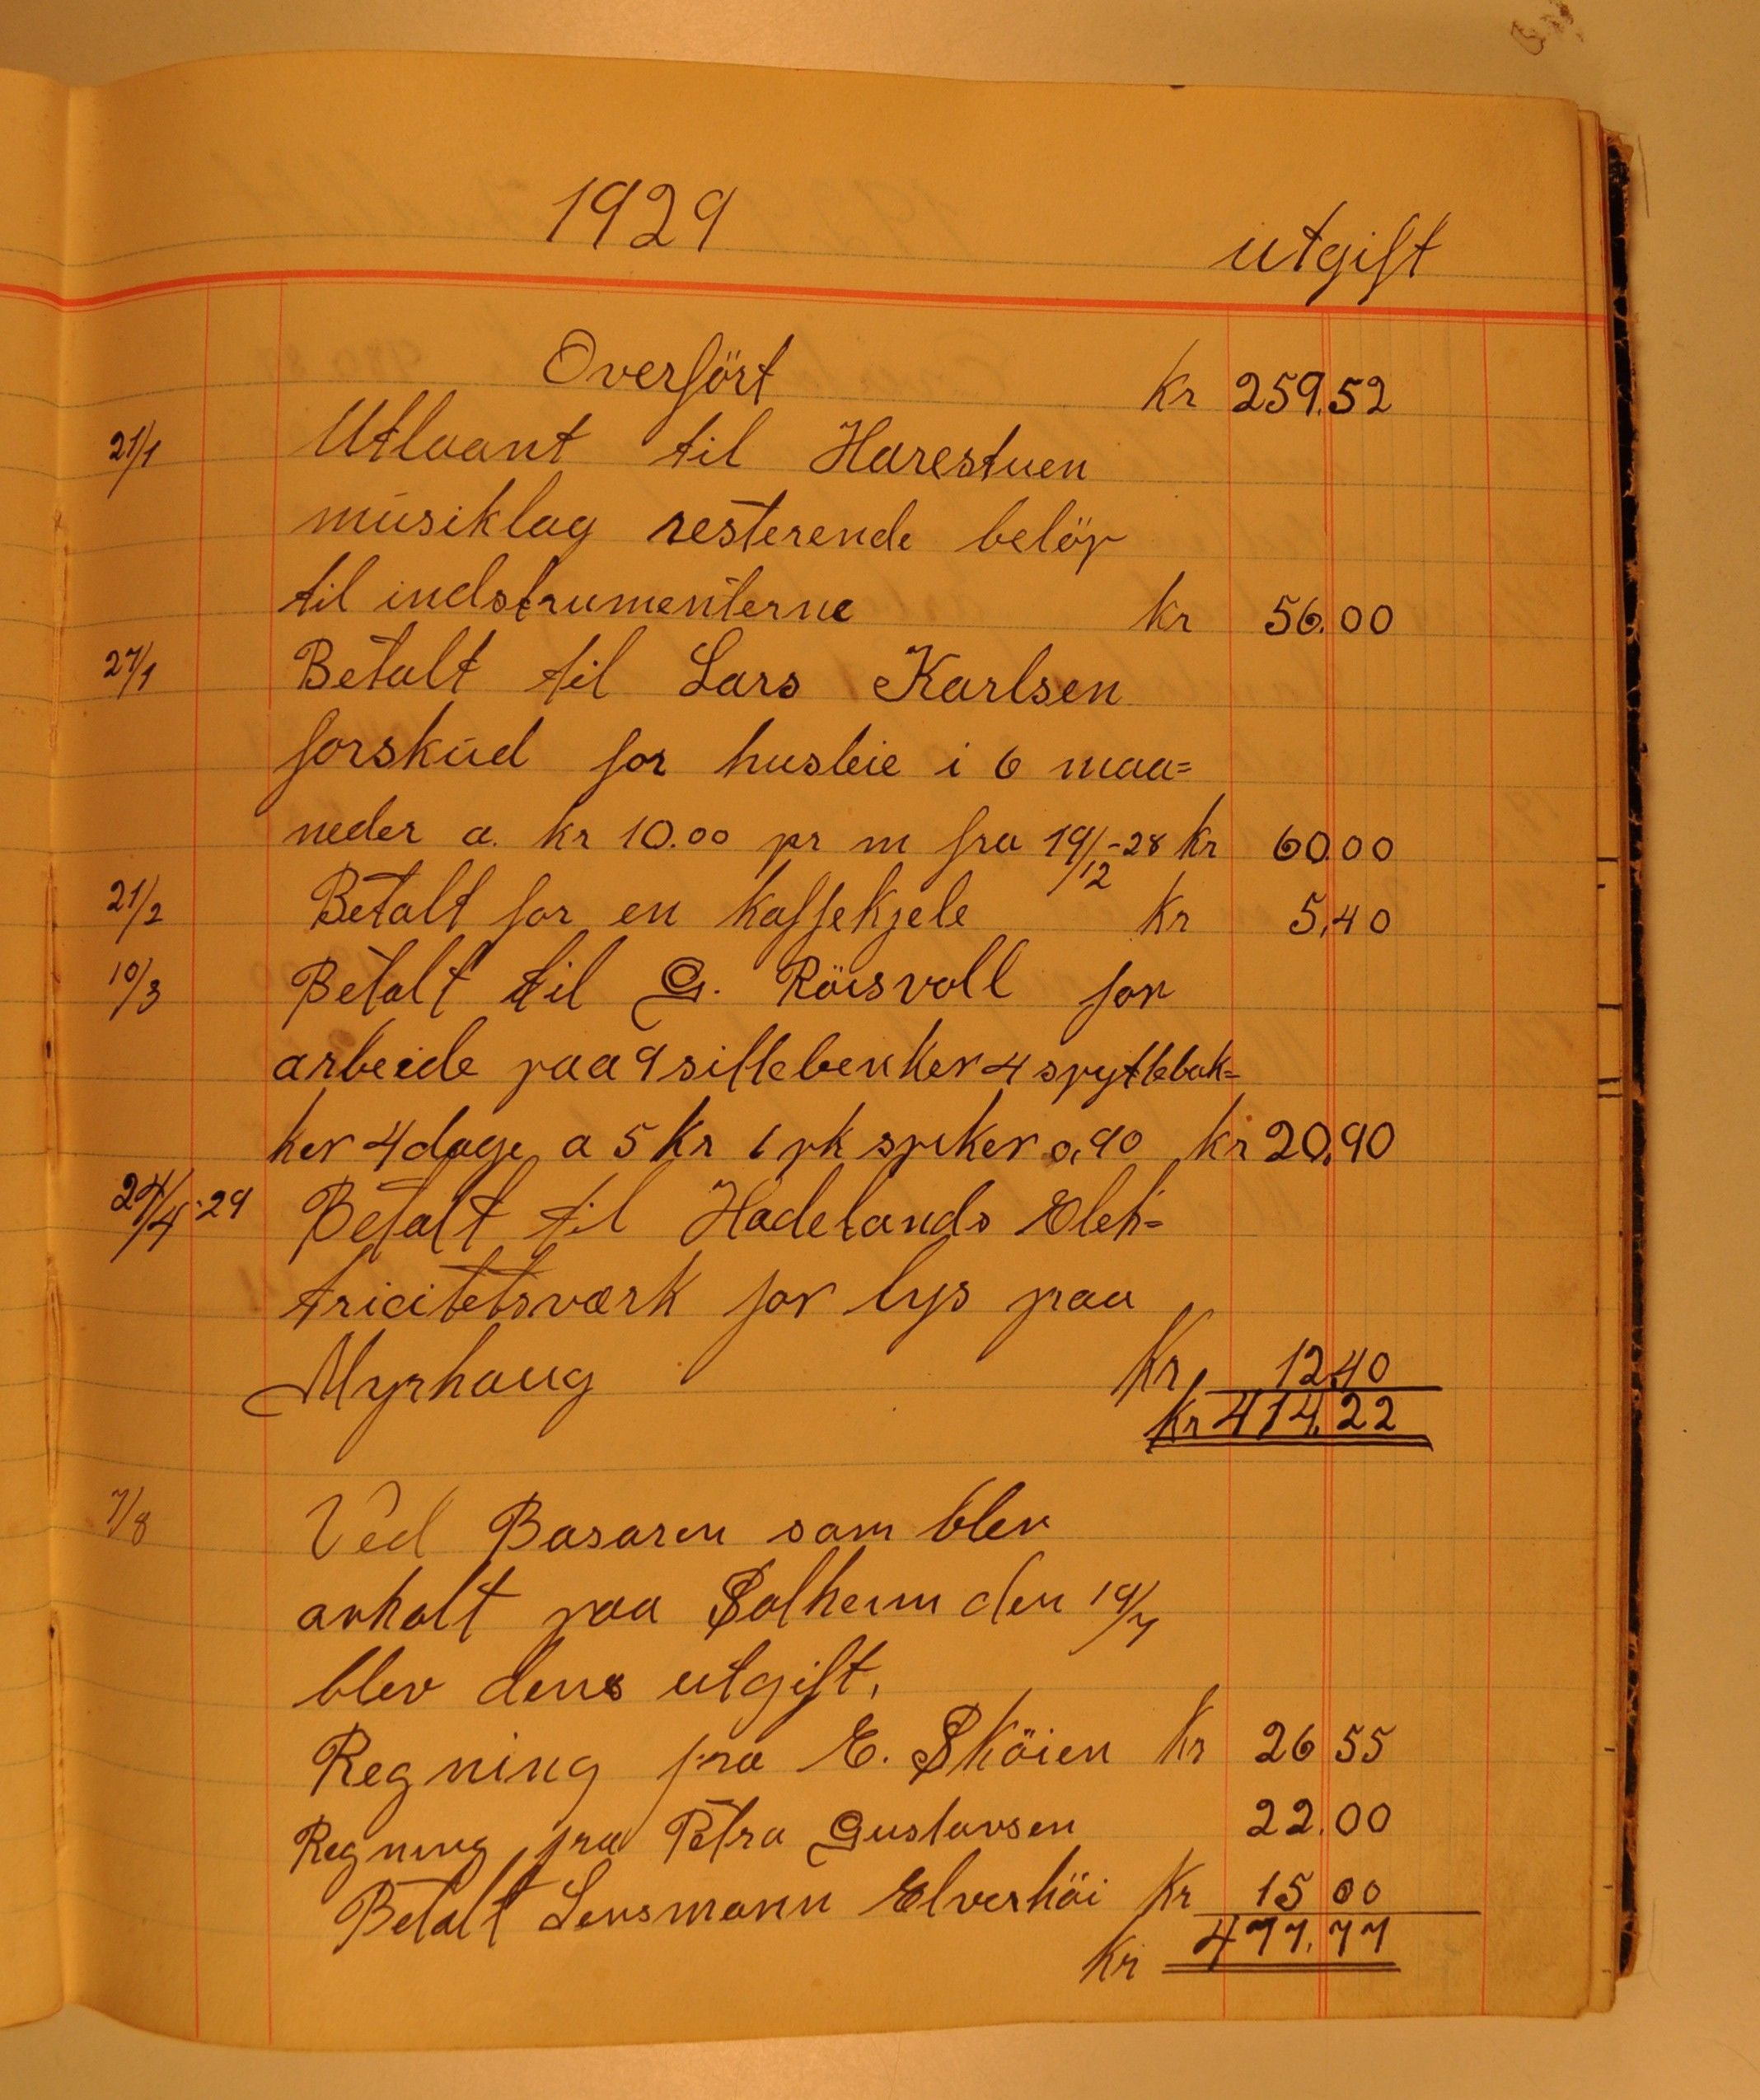 1929
utgift
Overfört Kr 259.52
21/1 Utlaant til Harestuen
musiklag resterende belöp
til indstrumenterne Kr 56.00
27/1 Betalt til Lars Karlsen
forskud for husleie i 6 maa=
neder a. kr 10.00 pr m fra 19/12-28 Kr 60.00
21/2 Betalt for en Kaffekjele Kr 5,40
10/3 Betalt til G. Röisvoll for
arbeide paa 9 sittebenker 4 spyttebak=
ker 4 dage a 5 Kr 1 pk spiker 0,90 Kr 20,90
24/4-29 Betalt til Hadelands Elek=
tricitetsværk for lys paa
Myrhaug Kr 12.40
Kr 414.22
7/8 Ved Basaren som blev
avholt paa Solheim den 19/7
blev dens utgift.
Regning fra E. Sköien Kr 26 55
Regning fra Petra Gustavsen 22.00
Betalt Lensmann Elverhöi Kr 15 00
Kr 477.77